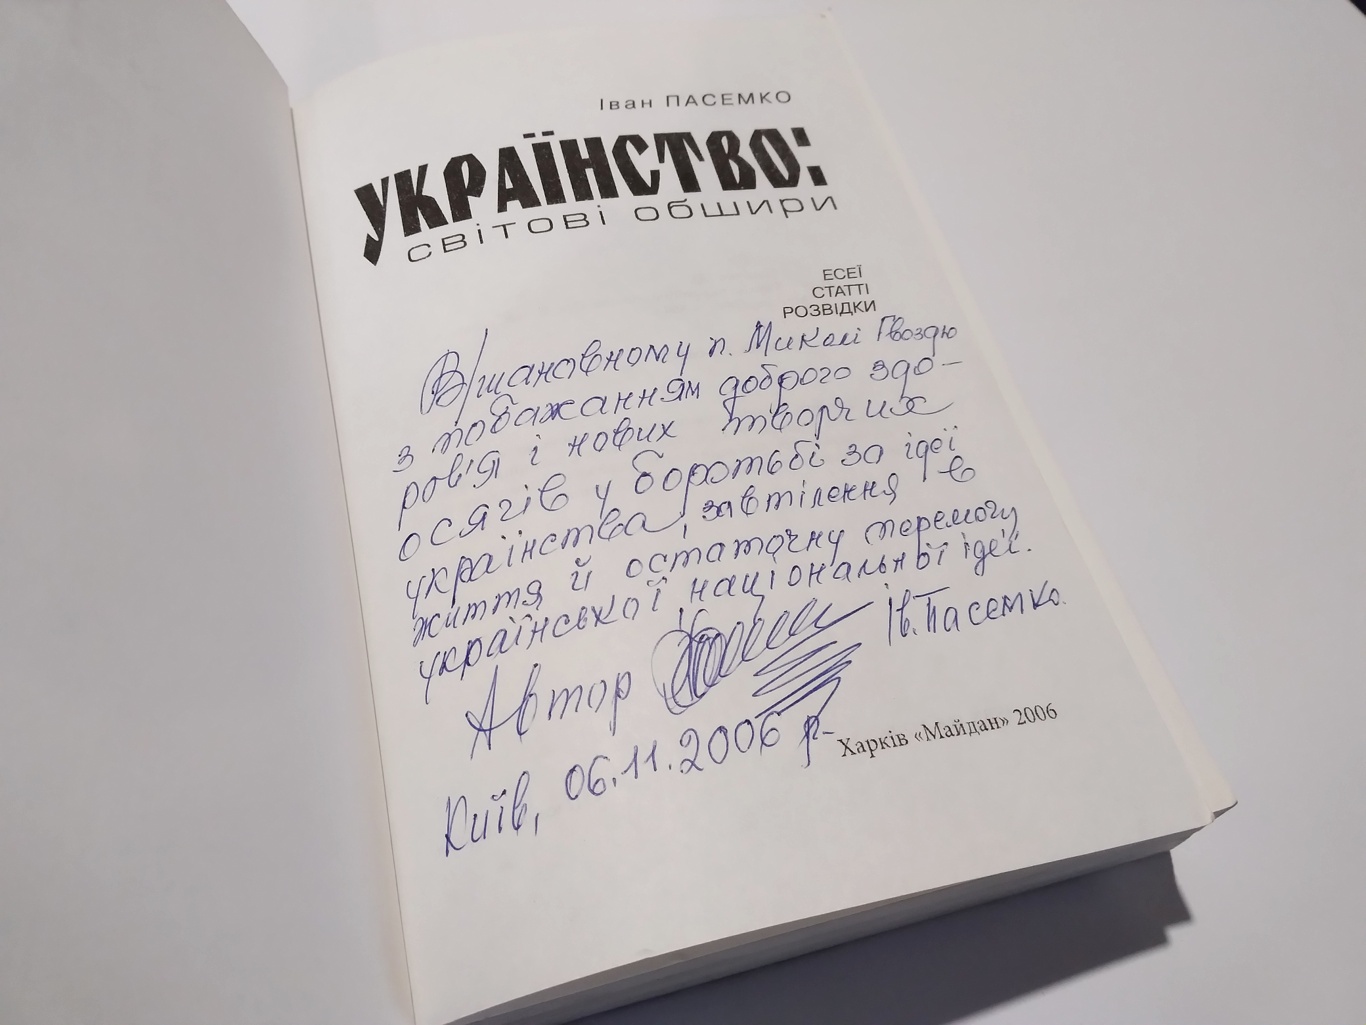 Іван ПАСЕМКО
УКРАЇНСТВО:
СВІТОВІ ОБШИРИ
ЕСЕЇ
СТАТТІ
РОЗВІДКИ
В/шановному п. Миколі Гвоздю
з побажанням доброго здо-
ров'я і нових творчих
осягів у боротьбі за ідеї
українства, завтілення в
життя й остаточну перемогу
української національної ідеї.
Автор Ів. Пасемко.
Київ, 06.11.2006 р.
Харків «Майдан» 2006